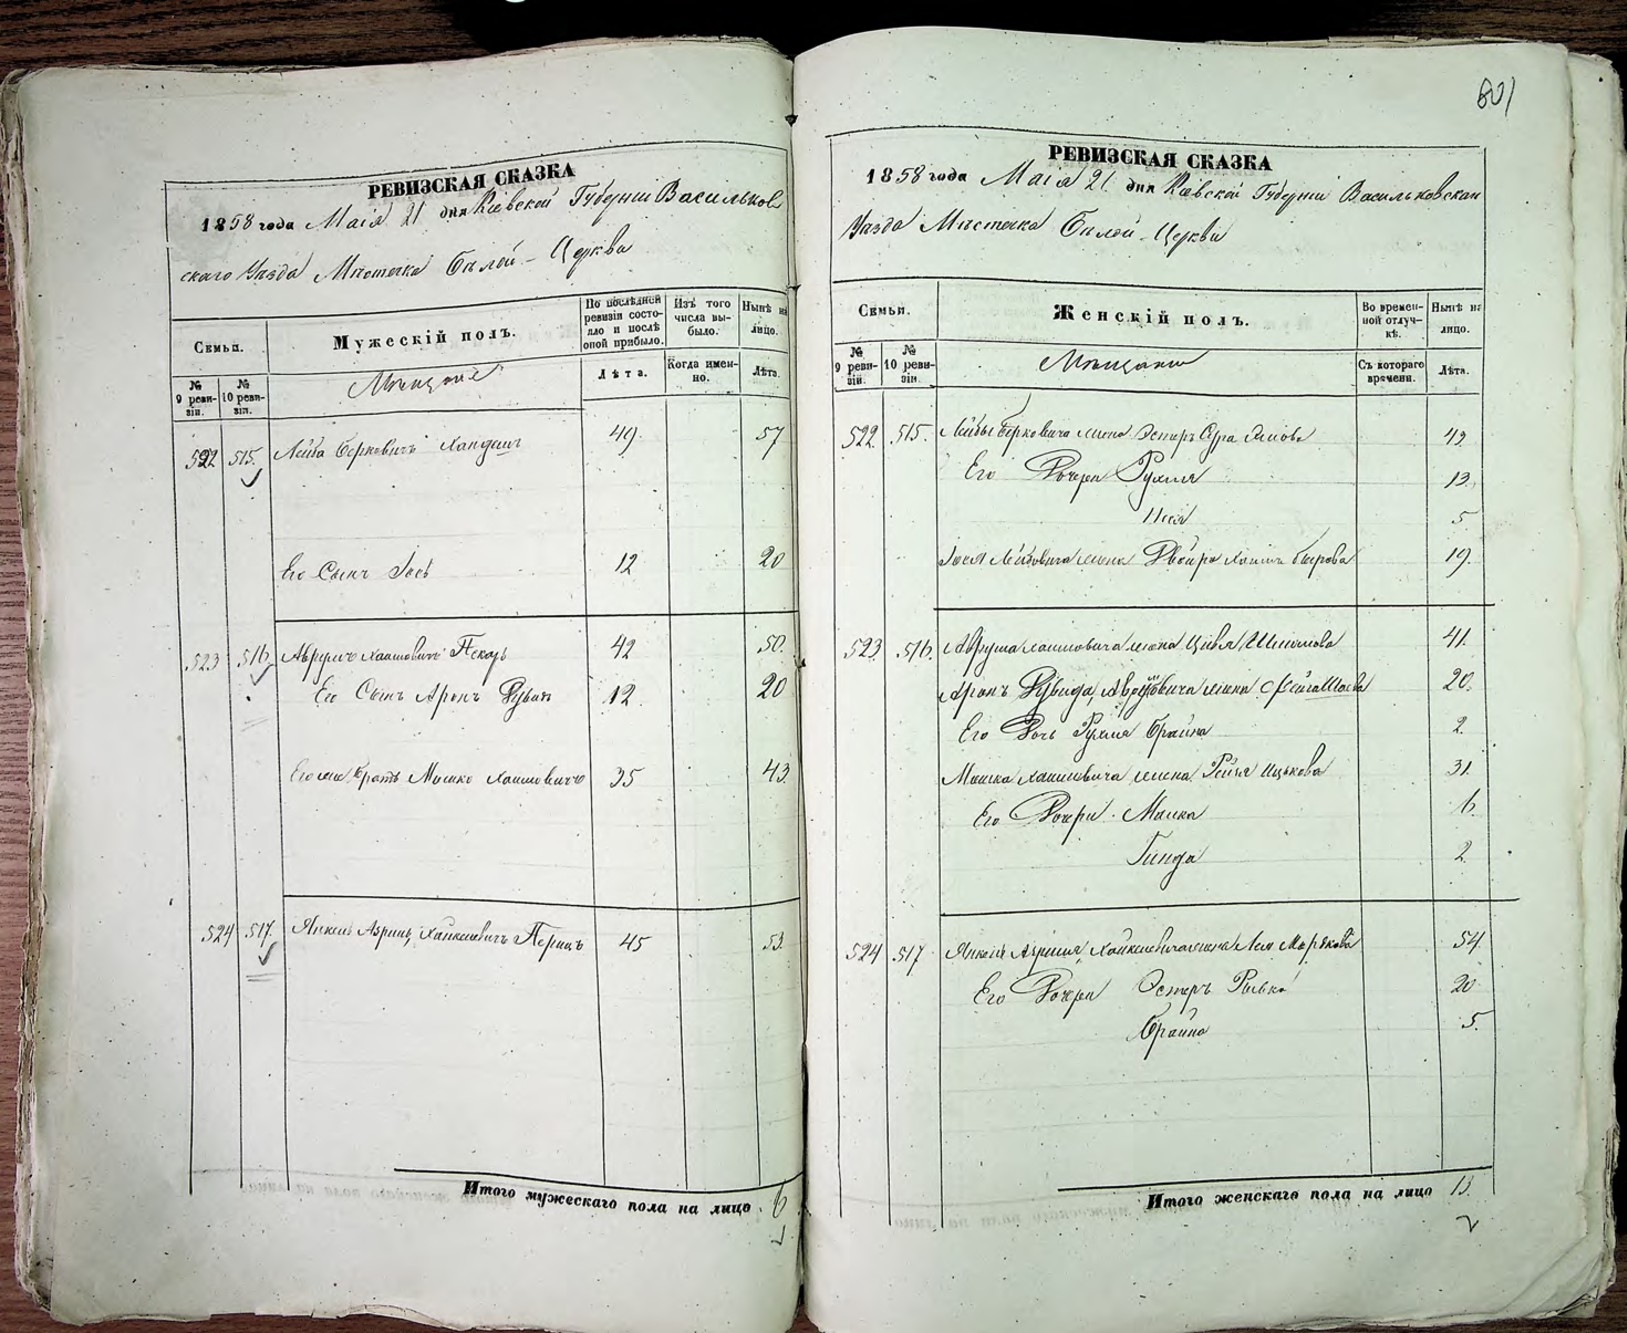 801
РЕВИЗСКАЯ СКАЗКА
1858 года Маія 21 дня Кіевской Губерніи Васильков
скаго Уѣзда Мѣстечка Бѣлой-Церкви
Семьи.
Мужескій полъ.
По послѣдней ревизіи состояло и послѣ оной прибыло.
Изъ того числа выбыло.
Нынѣ на лицо.
№ 9 ревизіи.
№ 10 ревизіи.
Мѣщане
Лѣта.
Когда именно.
Лѣта.
522 515. Лейба Берковичъ 49. 57
Его Сынъ Іось 12 20
523 516 Аврумъ Хаимовичъ Пекарь 42 50.
Его Сынъ Аронъ 12. 20
Его же Братъ Мошко Хаимовичъ 35 43.
524 517. Янкель Азриль 45 53.
Итого мужескаго пола на лицо 6
РЕВИЗСКАЯ СКАЗКА
1858 года Маія 21 дня Кіевской Губерніи Васильковскаго
Уѣзда Мѣстечка Бѣлой-Церкви
Семьи.
Женскій полъ.
Во временной отлучкѣ.
Нынѣ на лицо.
№ 9 ревизіи.
№ 10 ревизіи.
Мѣщанки
Съ котораго времени.
Лѣта.
522 515. Лейбы Берковича жена Эстеръ Сура 49.
Его Дочери Рухля 13.
5
Іося Лейбовича жена Двойра 19.
523 516. Аврума Хаимовича жена Цивья 41.
Аронъ жена 20.
Его Дочь Рухля Брайна 2.
Мошка Хаимовича жена Рейзя Ицькова 31.
Его Дочери Малка 6.
Гинда 2.
524 517 жена Лея 54.
Его Дочери Эстеръ Рывка 20
Брайна 5.
Итого женскаго пола на лицо 13.